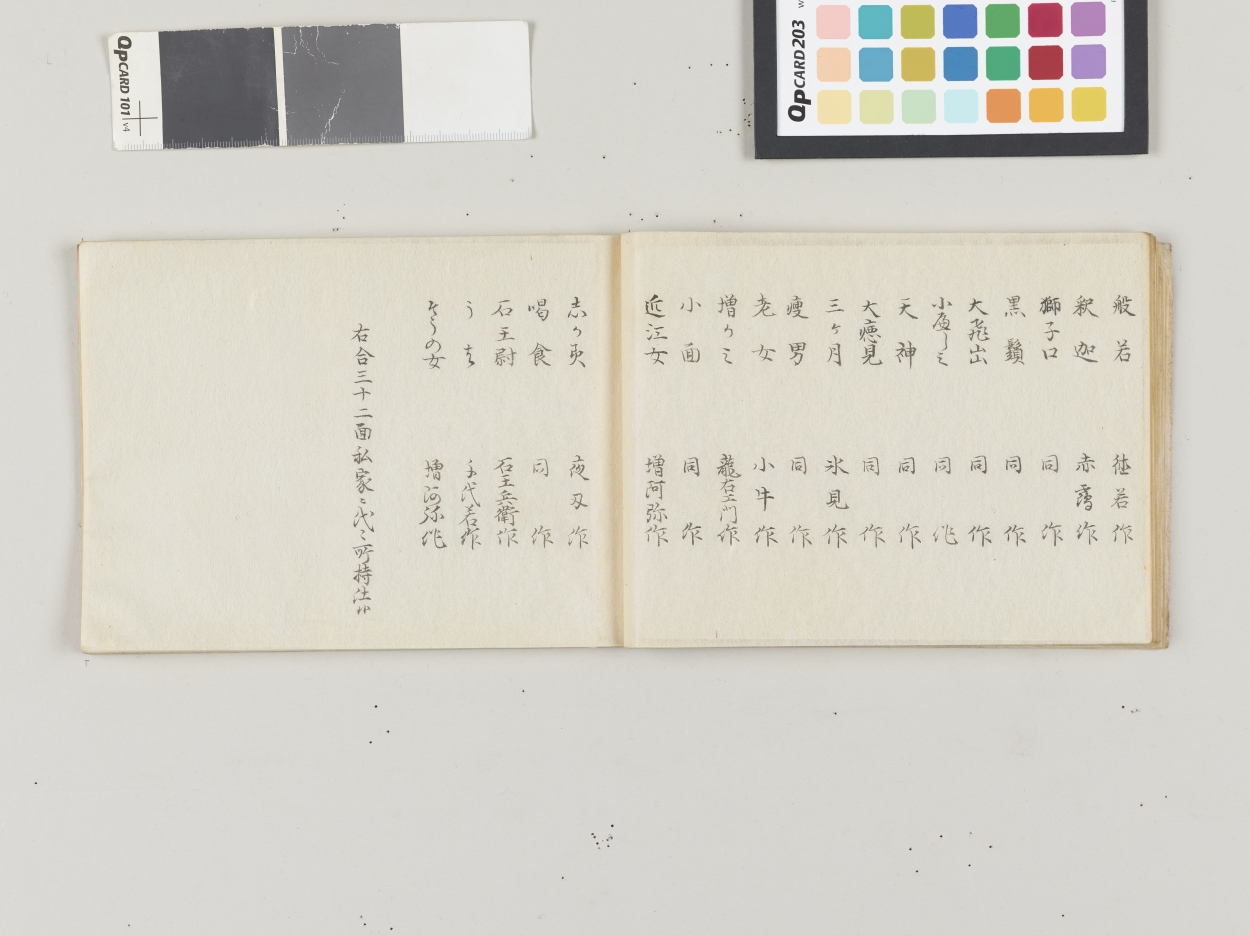 QPCARD 101 v4
QPCARD 203
般若 徳若作
釈迦 赤靍作
獅子口 同作
黒鬚 同作
大飛出 同作
小べしミ 同作
天神 同作
大癋見 同作
三ケ月 氷見作
痩男 同作
老女 小牛作
増ケミ 龍右エ門作
小面 同作
近江女 増阿弥作
志かミ 夜叉作
喝食 同作
石王尉 石王兵衛作
千代若作
ぞうの女 増阿弥作
右合三十二面私家ニ代ニ所持仕